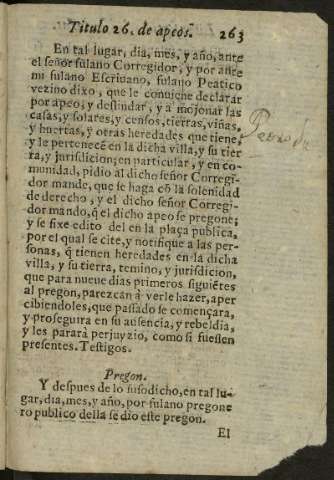 Titulo 26. de apeos. 263
En tal lugar, dia, mes, y año, ante
el señor fulano Corregidor, y por ante
mi fulano Escriuano, fulano Peatico
vezino dixo, que le conuiene declarar
por apeo, y deslindar, y a mojonar las
casas, y solares, y censos, tierras, viñas,
y huertas, y otras heredades que tiene,
y le pertenecẽ en la dicha villa, y su tier
ra, y jurisdicion; en particular, y en co-
munidad, pidio al dicho señor Corregi-
dor mande, que se haga cõ la solenidad
de derecho, y el dicho señor Corregi-
dor mando, q̃ el dicho apeo se pregone;
y se fixe edito del en la plaça publica,
por el qual se cite, y notifique a las per-
sonas, q̃ tienen heredades en la dicha
villa, y su tierra, temino, y jurisdicion,
que para nueue dias primeros siguiẽtes
al pregon, parezcan à verle hazer, aper
cibiendoles, que passado se començara,
y proseguira en su ausencia, y rebeldia,
y les parará perjuyzio, como si fuessen
presentes. Testigos.
Pregon.
Y despues de lo susodicho, en tal lu-
gar, dia, mes, y año, por fulano pregone
ro publico della se dio este pregon.
El